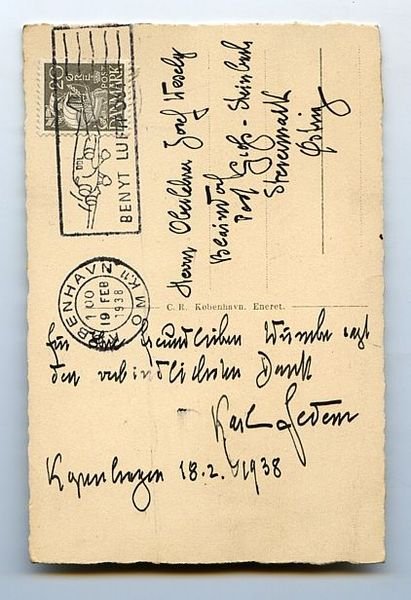 20
ØRE
POST
DANMARK
BENYT LUFTPOSTEN
KØBENHAVN
OMK. 11
19 FEB
1938
Herrn Josef Wesely
Post Groß-Steinbach
Steiermark
C. R. København. Eneret.
für die freundlichen Wünsche sagt
den verbindlichsten Dank
Karl
Kopenhagen 18.2.1938